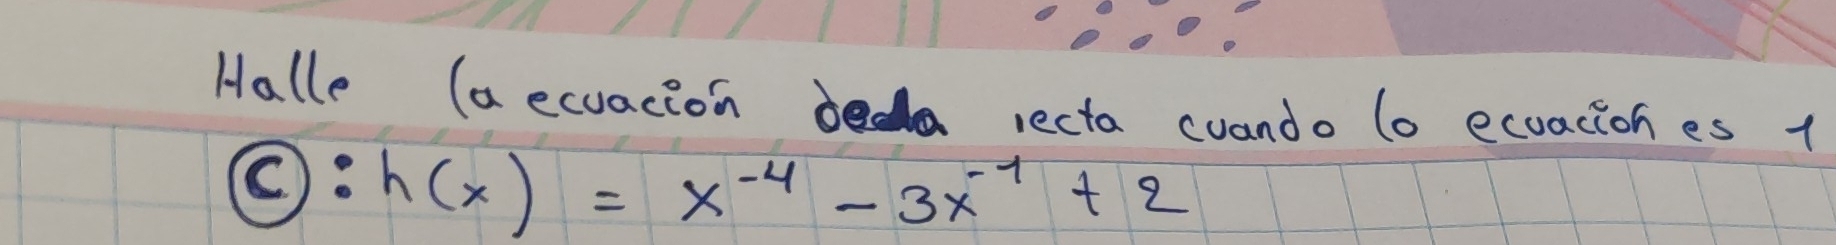 Halle la ecuación de la recta cuando la ecuación es 1
C : h(x) = x⁻⁴ - 3x⁻¹ + 2